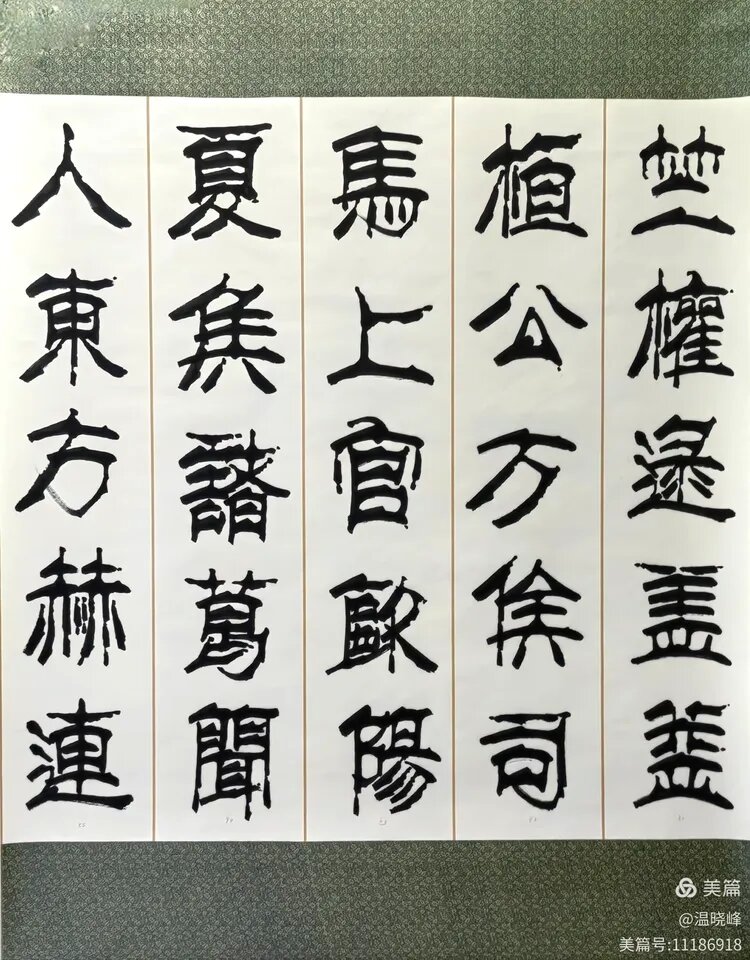 竺權逯盖益
桓公万俟司
馬上官歐陽
夏侯諸葛聞
人東方赫連
美篇
@温晓峰
美篇号:11186918